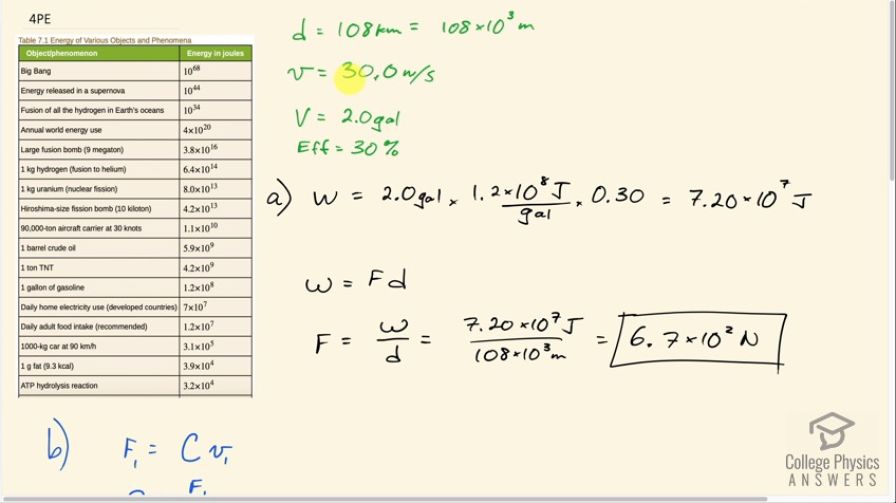 4PE
Table 7.1 Energy of Various Objects and Phenomena
Object/phenomenon Energy in joules
Big Bang 10⁶⁸
Energy released in a supernova 10⁴⁴
Fusion of all the hydrogen in Earth's oceans 10³⁴
Annual world energy use 4×10²⁰
Large fusion bomb (9 megaton) 3.8×10¹⁶
1 kg hydrogen (fusion to helium) 6.4×10¹⁴
1 kg uranium (nuclear fission) 8.0×10¹³
Hiroshima-size fission bomb (10 kiloton) 4.2×10¹³
90,000-ton aircraft carrier at 30 knots 1.1×10¹⁰
1 barrel crude oil 5.9×10⁹
1 ton TNT 4.2×10⁹
1 gallon of gasoline 1.2×10⁸
Daily home electricity use (developed countries) 7×10⁷
Daily adult food intake (recommended) 1.2×10⁷
1000-kg car at 90 km/h 3.1×10⁵
1 g fat (9.3 kcal) 3.9×10⁴
ATP hydrolysis reaction 3.2×10⁴
d = 108 km = 108×10³ m
v = 30.0 m/s
V = 2.0 gal
Eff = 30 %
a) W = 2.0 gal × 1.2×10⁸ J / gal × 0.30 = 7.20×10⁷ J
W = Fd
F = W / d = 7.20×10⁷ J / 108×10³ m = 6.7×10² N
b) F₁ = C v₁
F₁
College Physics
ANSWERS